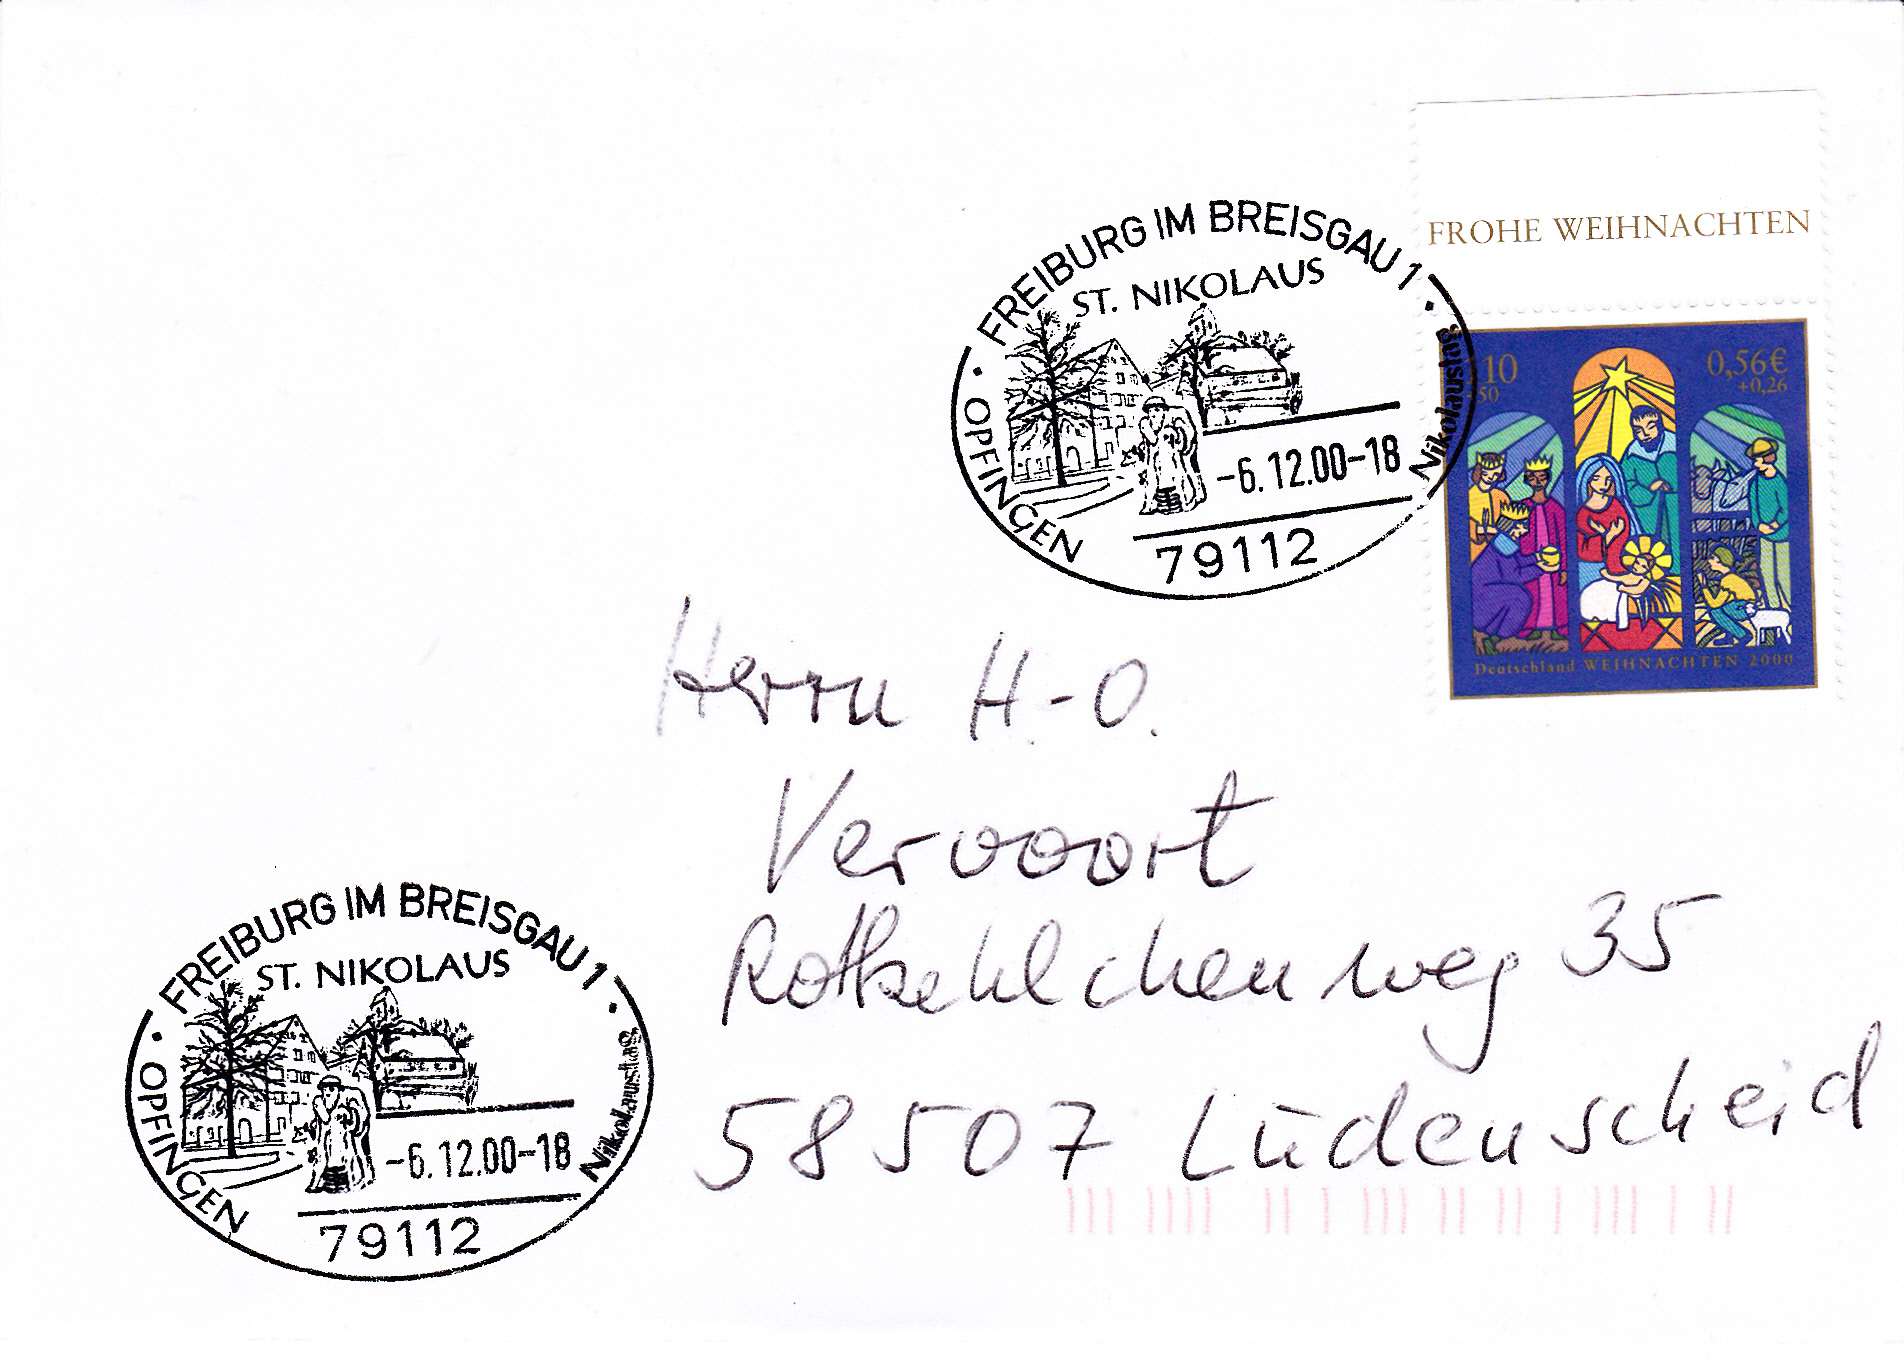 FROHE WEIHNACHTEN
10 0,56€
50 +0,26
Deutschland WEIHNACHTEN 2000
FREIBURG IM BREISGAU 1
ST. NIKOLAUS
OPFINGEN
-6.12.00-18
79112
Herrn H.-O.
Vervoort
Rotkehlchenweg 35
58507 Lüdenscheid
FREIBURG IM BREISGAU 1
ST. NIKOLAUS
OPFINGEN
-6.12.00-18
79112